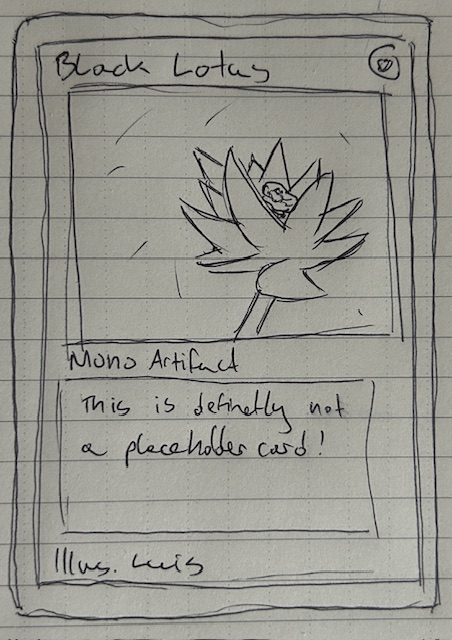 Black Lotus
Mono Artifact
This is definetly not
a placeholder card!
Illus. Luis